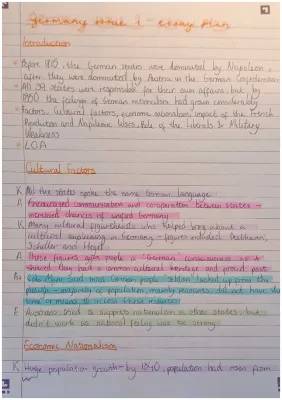 Germany Issue 1 - essay plan
Introduction
• Before 1815, the German states were dominated by Napoleon,
after they were dominated by Austria in the German Confederation
• All 39 states were responsible for their own affairs, but, by
1850 the feelings of German nationalism had grown considerably
• Factors: Cultural factors, economic nationalism, impact of the French
Revolution and Napoleonic Wars, Role of the Liberals & Military
Weakness
• LOA
Cultural Factors
K All the states spoke the same German language
A Encouraged communication and cooperation between states -
increased chances of unified Germany
K Many cultural figureheads who helped bring about a
cultural awakening in Germany - figures included Beethoven,
Schiller and Hegel
A These figures gave people a German consciousness as it
showed they had a common cultural heritage and proud past
Golo Mann said most German people 'seldom looked up from the
plough' - majority of population, mainly peasants, did not have the
time or means to access these
E Austrians tried to suppress nationalism in other states, but
didn't work as national feeling was so strong
Economic Nationalism
K Huge population growth - by 1840, population had risen from